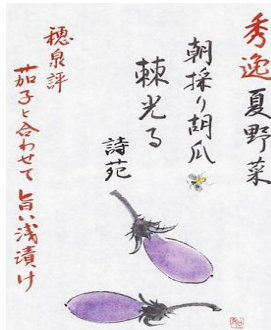 秀逸 夏野菜
朝採り胡瓜
棘光る
詩苑
穂泉評
茄子と合わせて旨い浅漬け